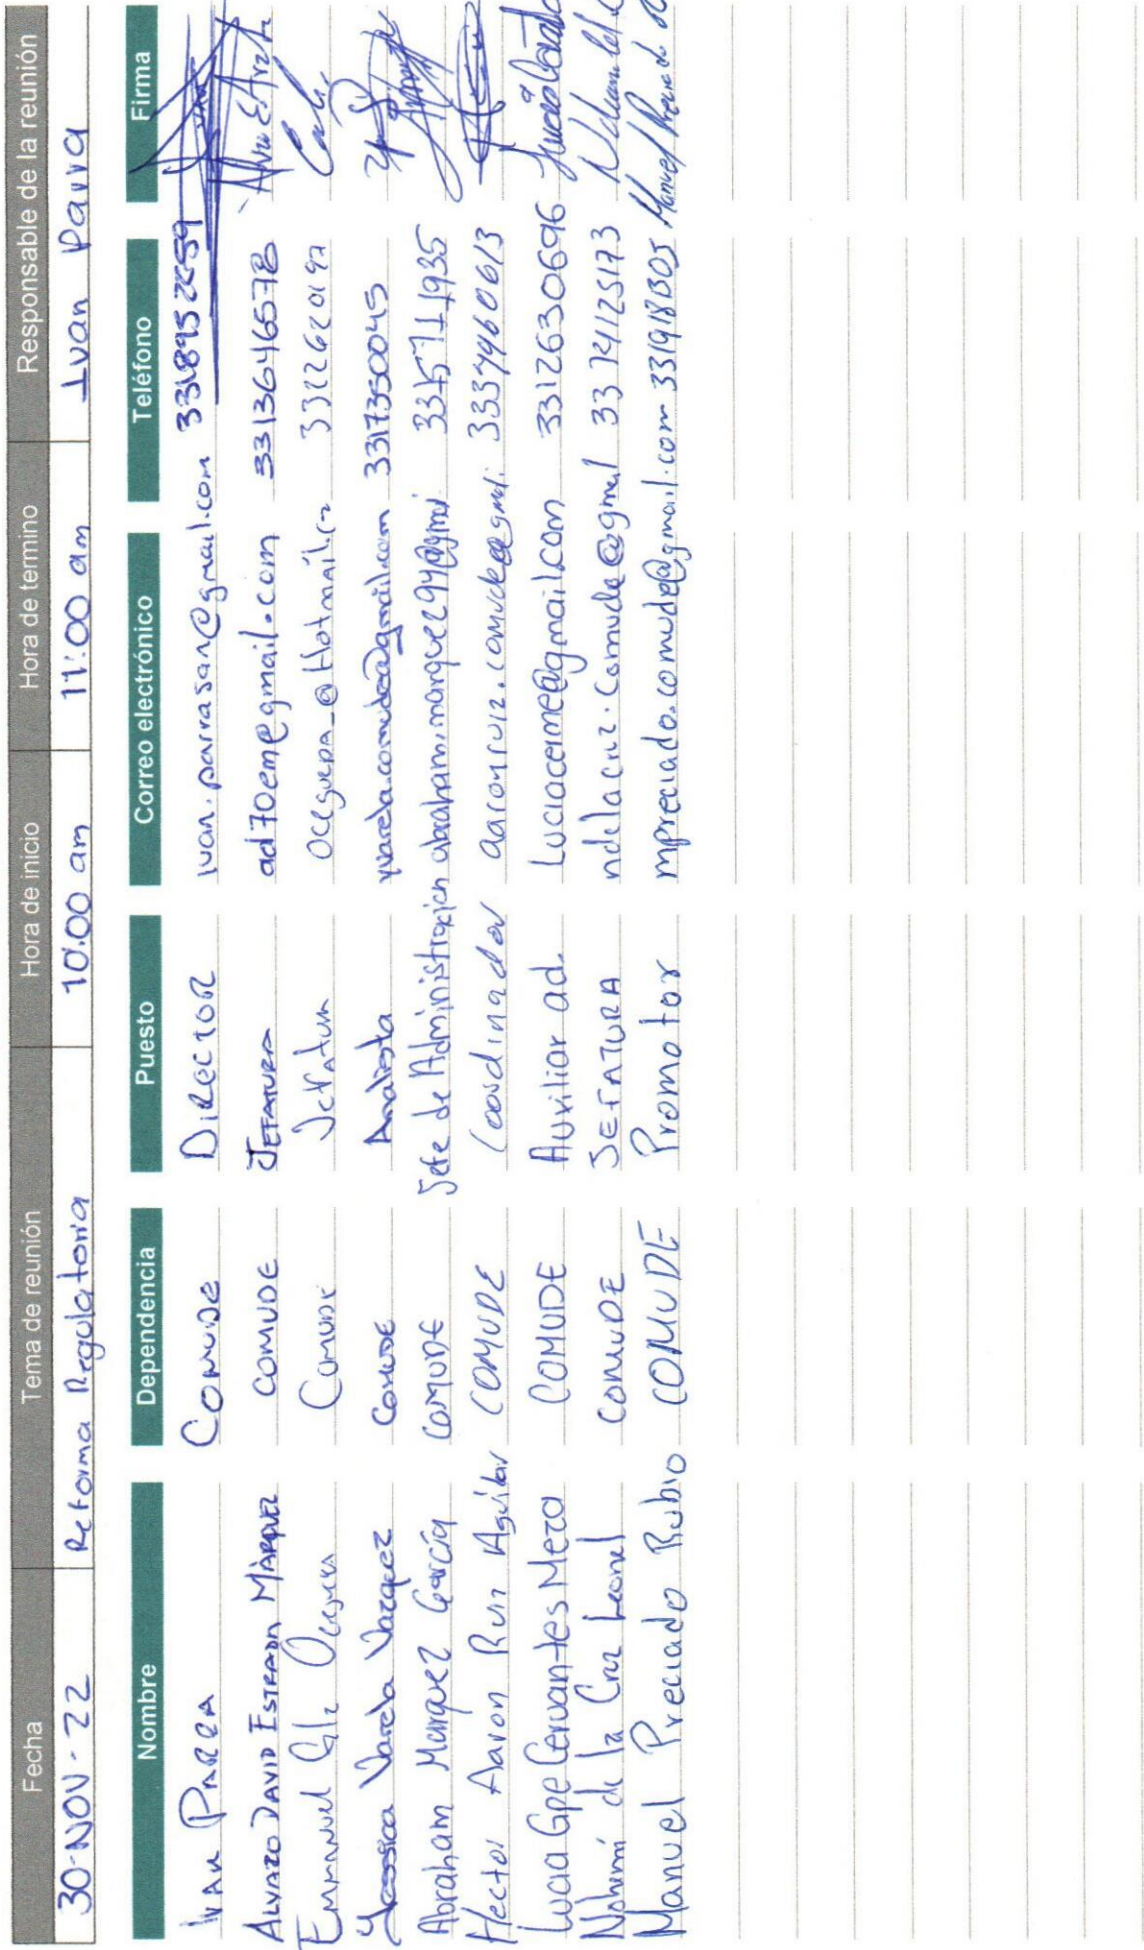 Fecha Tema de reunión Hora de inicio Hora de termino Responsable de la reunión
30-NOV-22 Reforma Regulatoria 10:00 am 11:00 am Ivan Parra
Nombre Dependencia Puesto Correo electrónico Teléfono Firma
IVAN PARRA COMUDE DIRECTOR ivan.parrasan@gmail.com
ALVARO DAVID ESTRADA MÁRQUEZ COMUDE JEFATURA ad70em@gmail.com 3313646578
EMMANUEL Glz Comude Jefatura
Yessica Varela Vazquez COMUDE Analista yvarela.comude@gmail.com 3317350045
Abraham Marquez García COMUDE Jefe de Administración abraham.marquez94@gmai
Hector Aaron Ruiz Aguilar COMUDE Coordinador aaronruiz.comude@gmai. 3334460613
Lucia Gpe Cervantes Meza COMUDE Auxiliar ad. Luciacerme@gmail.com 3312630696
Nohemí de la Cruz Leonel COMUDE JEFATURA ndelacruz.Comude@gmail
Manuel Preciado Rubio COMUDE Promotor mpreciado.comude@gmail.com